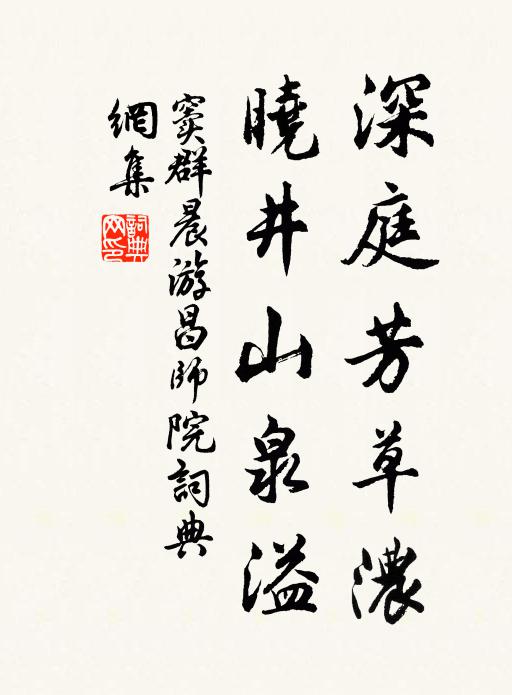 深庭芳草濃
曉井山泉溢
竇群晨游昌師院詞典
網集
詞典網印